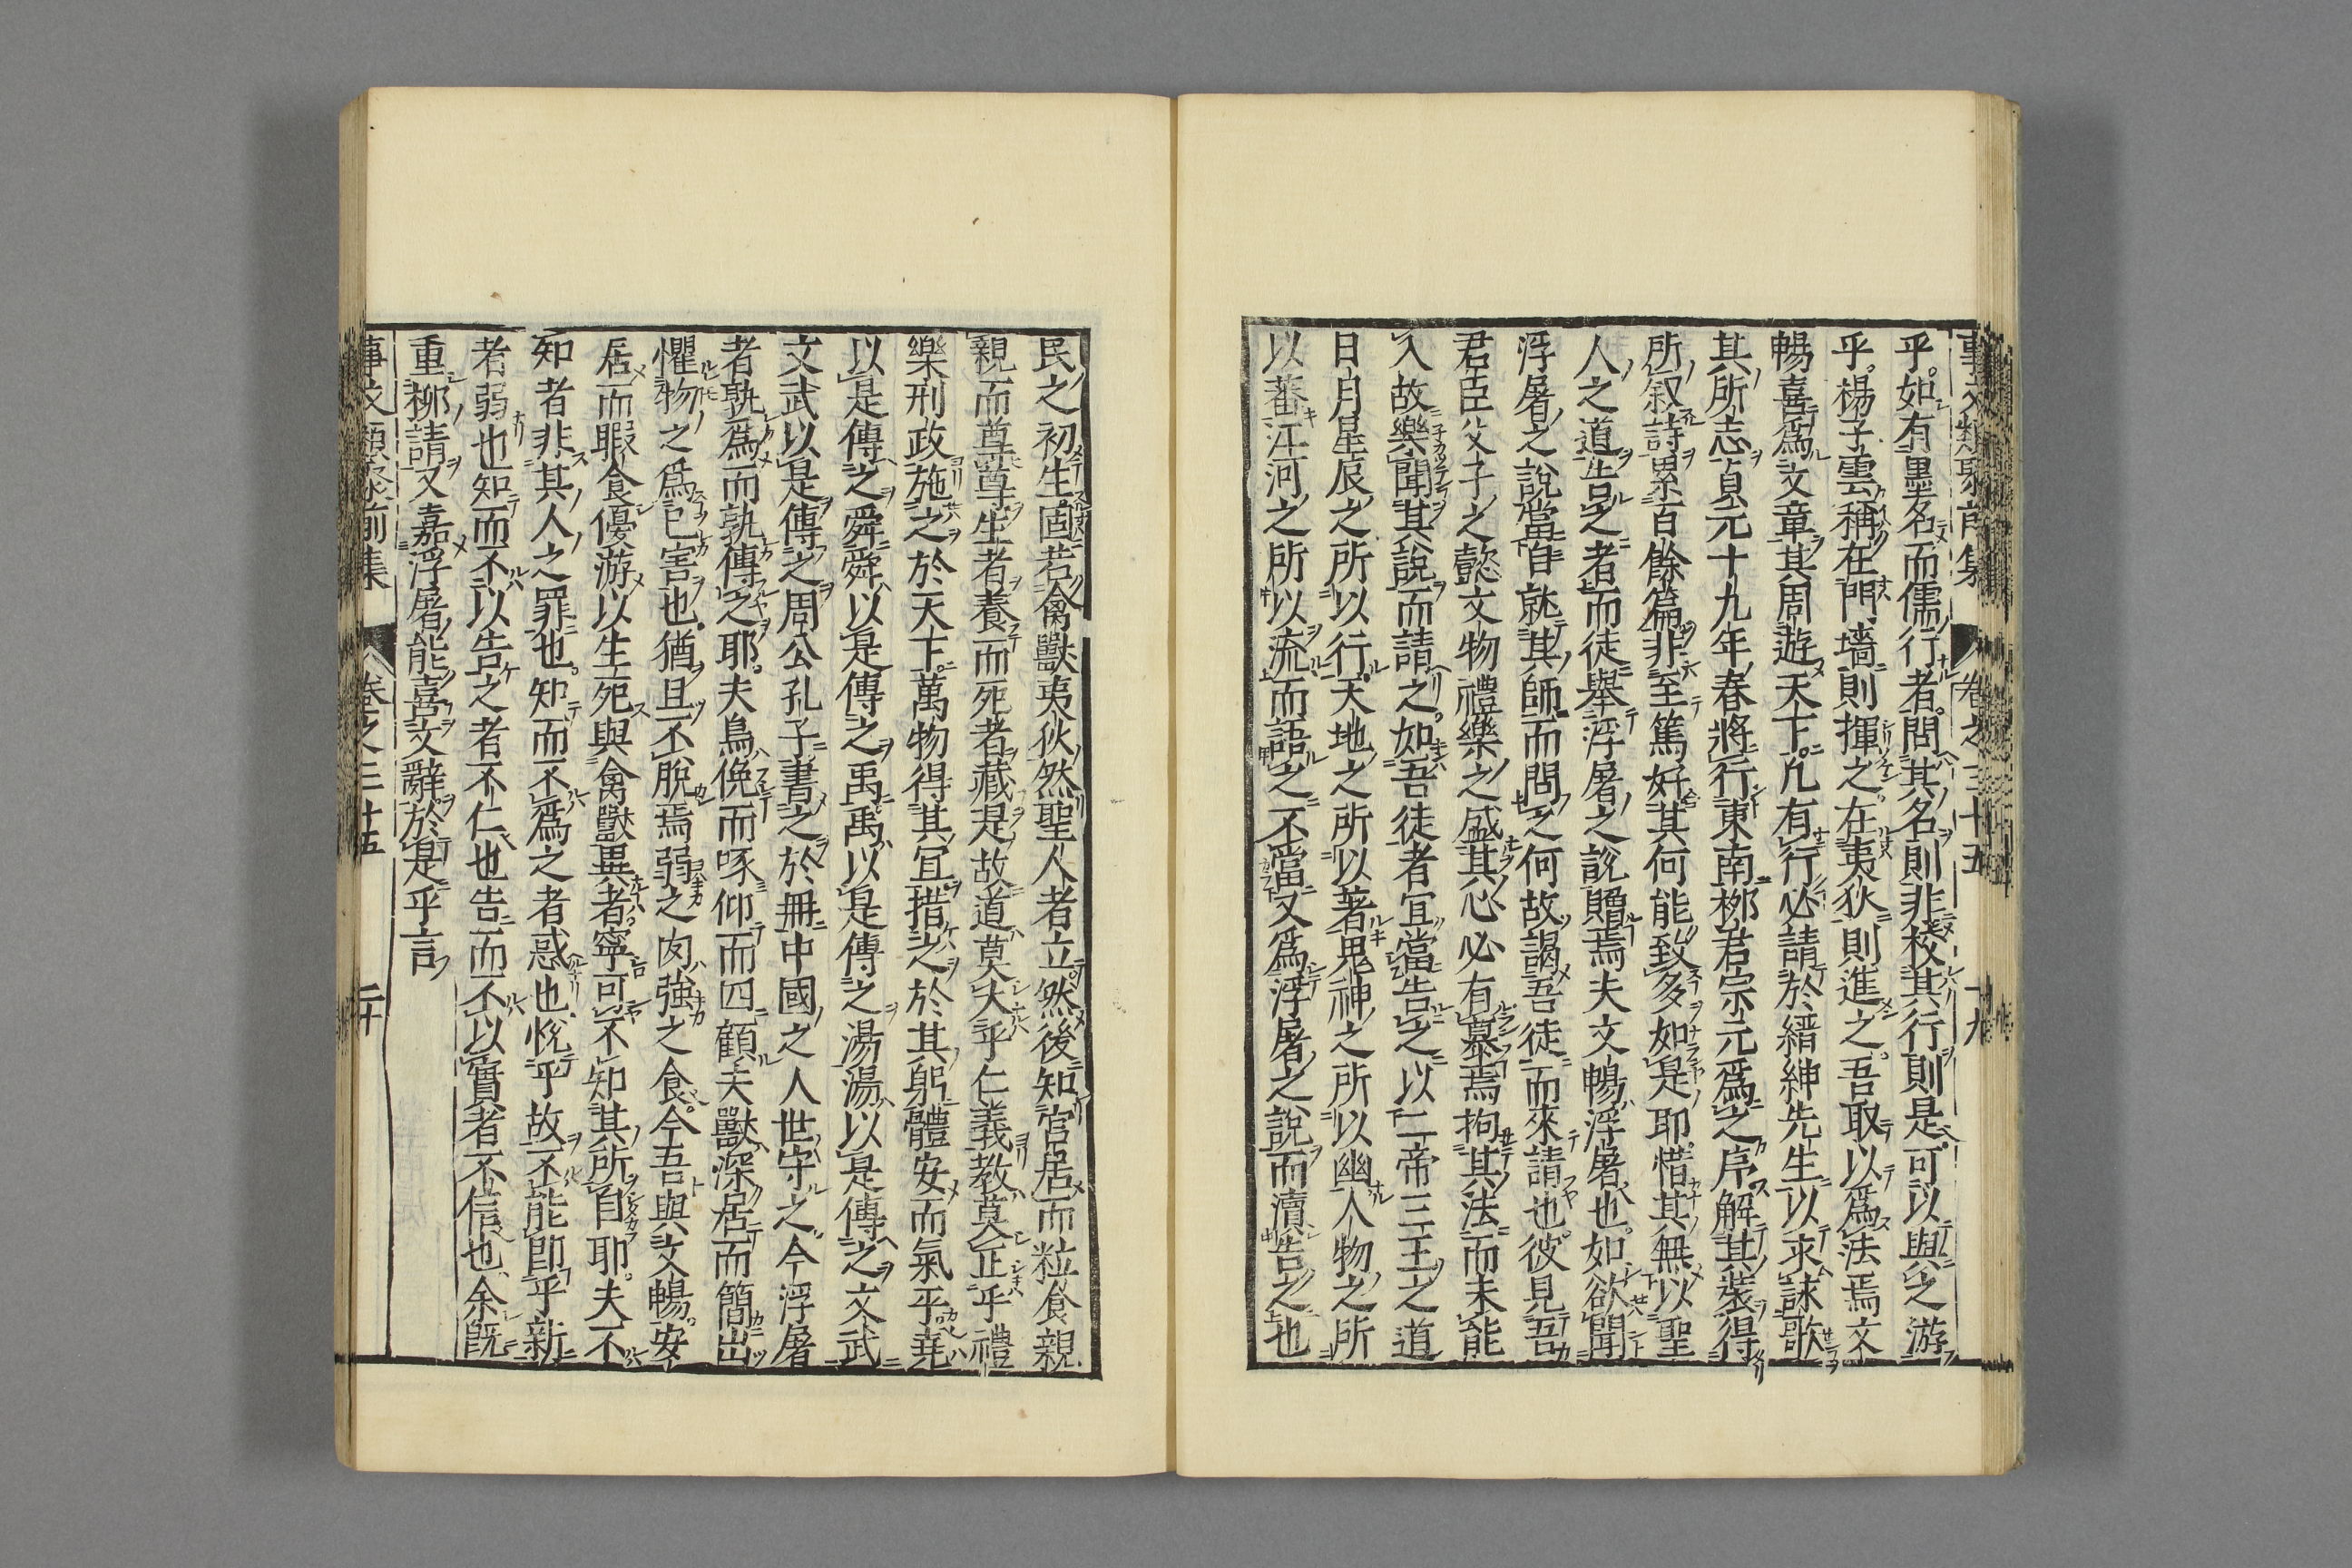 事文類聚前集 卷之三十五 十九
乎。如有墨名而儒行者。問其名則非。校其行則是。可以與之游
乎。楊子雲稱在門墻則揮之。在夷狄則進之。吾取以爲法焉文
暢喜爲文章其周遊天下。凢有行必請於縉紳先生以求詠歌
其所志貞元十九年春將行東南栁君宗元爲之序解其裝得
所叙詩累百餘篇非至篤好其何能致多如是耶。惜其無以聖
人之道告之者而徒舉浮屠之說贈焉夫文暢浮屠也。如欲聞
浮屠之說當自就其師而問之何故謁吾徒而來請也。彼見吾
君臣父子之懿文物禮樂之盛其心必有慕焉拘其法而未能
入故樂聞其說而請之。如吾徒者宜當告之以二帝三王之道
日月星辰之所以行天地之所以著鬼神之所以幽人物之所
以蕃江河之所以流而語之不當又爲浮屠之說而瀆告之也
民之初生固若禽獸夷狄然聖人者立然後知宮居而粒食親
親而尊尊生者養而死者藏是故道莫大乎仁義教莫正乎禮
樂刑政施之於天下。萬物得其宜措之於其躬體安而氣平。堯
以是傳之舜舜以是傳之禹禹以是傳之湯湯以是傳之文武
文武以是傳之周公孔子書之於冊中國之人世守之今浮屠
者孰爲而孰傳之耶。夫鳥俛而啄仰而四顧夫獸深居而簡出
懼物之爲已害也。猶且不脫焉弱之肉強之食。今吾與文暢。安
居而暇食優游以生死與禽獸異者。寧可不知其所自耶。夫不
知者非其人之罪也。知而不爲之者惑也。悅乎故不能即乎新
者弱也知而不以告之者不仁也告而不以實者不信也余旣
重栁請又嘉浮屠能喜文辭於是乎言
事文類聚前集 卷之三十五 二十